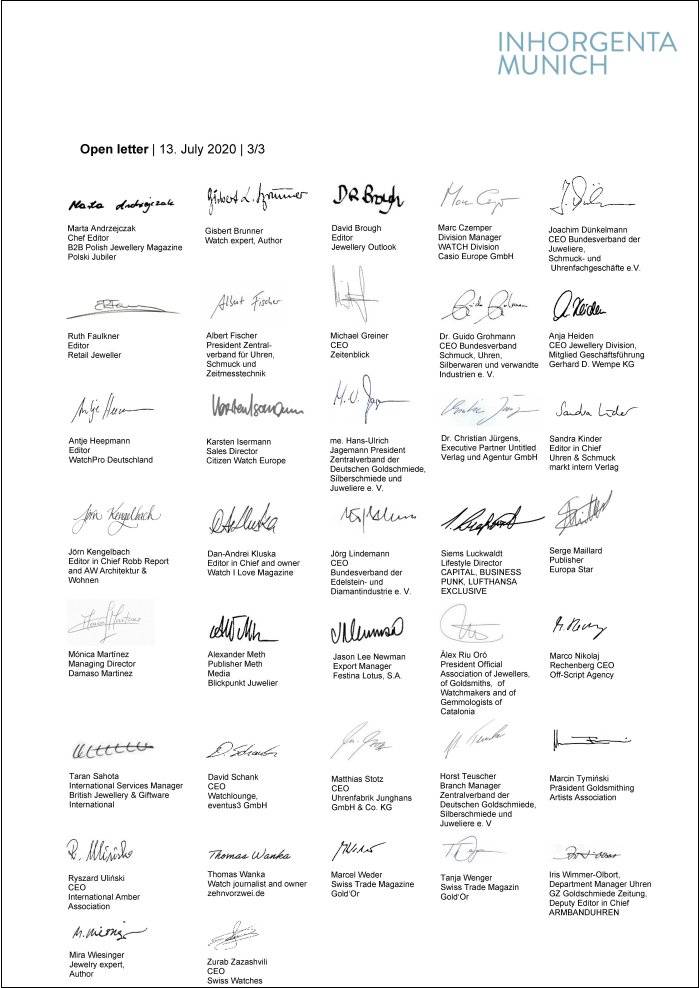 INHORGENTA
MUNICH
Open letter | 13. July 2020 | 3/3
Marta Andrzejczak
Chef Editor
B2B Polish Jewellery Magazine
Polski Jubiler
Gisbert Brunner
Watch expert, Author
David Brough
Editor
Jewellery Outlook
Marc Czemper
Division Manager
WATCH Division
Casio Europe GmbH
Joachim Dünkelmann
CEO Bundesverband der
Juweliere,
Schmuck- und
Uhrenfachgeschäfte e.V.
Ruth Faulkner
Editor
Retail Jeweller
Albert Fischer
Albert Fischer
President Zentral-
verband für Uhren,
Schmuck und
Zeitmesstechnik
Michael Greiner
CEO
Zeitenblick
Dr. Guido Grohmann
CEO Bundesverband
Schmuck, Uhren,
Silberwaren und verwandte
Industrien e. V.
Anja Heiden
CEO Jewellery Division,
Mitglied Geschäftsführung
Gerhard D. Wempe KG
Antje Heepmann
Editor
WatchPro Deutschland
Karsten Isermann
Sales Director
Citizen Watch Europe
me. Hans-Ulrich
Jagemann President
Zentralverband der
Deutschen Goldschmiede,
Silberschmiede und
Juweliere e. V.
Dr. Christian Jürgens,
Executive Partner Untitled
Verlag und Agentur GmbH
Sandra Kinder
Editor in Chief
Uhren & Schmuck
markt intern Verlag
Jörn Kengelbach
Jörn Kengelbach
Editor in Chief Robb Report
and AW Architektur &
Wohnen
Dan-Andrei Kluska
Editor in Chief and owner
Watch I Love Magazine
Jörg Lindemann
CEO
Bundesverband der
Edelstein- und
Diamantindustrie e. V.
Siems Luckwaldt
Lifestyle Director
CAPITAL, BUSINESS
PUNK, LUFTHANSA
EXCLUSIVE
Serge Maillard
Publisher
Europa Star
Mónica Martínez
Managing Director
Damaso Martinez
Alexander Meth
Publisher Meth
Media
Blickpunkt Juwelier
Jason Lee Newman
Export Manager
Festina Lotus, S.A.
Álex Riu Oró
President Official
Association of Jewellers,
of Goldsmiths, of
Watchmakers and of
Gemmologists of
Catalonia
Marco Nikolaj
Rechenberg CEO
Off-Script Agency
Taran Sahota
International Services Manager
British Jewellery & Giftware
International
David Schank
CEO
Watchlounge,
eventus3 GmbH
Matthias Stotz
CEO
Uhrenfabrik Junghans
GmbH & Co. KG
Horst Teuscher
Branch Manager
Zentralverband der
Deutschen Goldschmiede,
Silberschmiede und
Juweliere e. V
Marcin Tymiński
Präsident Goldsmithing
Artists Association
Ryszard Uliński
CEO
International Amber
Association
Thomas Wanka
Thomas Wanka
Watch journalist and owner
zehnvorzwei.de
Marcel Weder
Swiss Trade Magazine
Gold'Or
Tanja Wenger
Swiss Trade Magazin
Gold'Or
Iris Wimmer-Olbort,
Department Manager Uhren
GZ Goldschmiede Zeitung,
Deputy Editor in Chief
ARMBANDUHREN
Mira Wiesinger
Jewelry expert,
Author
Zurab Zazashvili
CEO
Swiss Watches